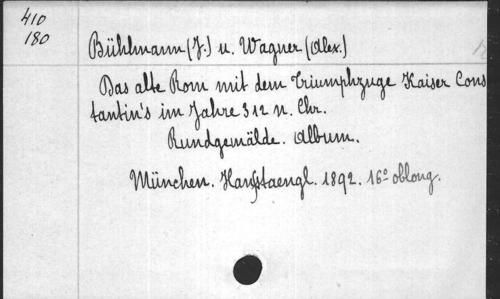 410
180
Bühlmann (J.) u. Wagner (Alex.)
Das alte Rom mit dem Triumphzuge Kaiser Cons
tantin's im Jahre 312 n. Chr.
Rundgemälde. Album.
München. Hanfstaengl. 1892. 16° oblong.